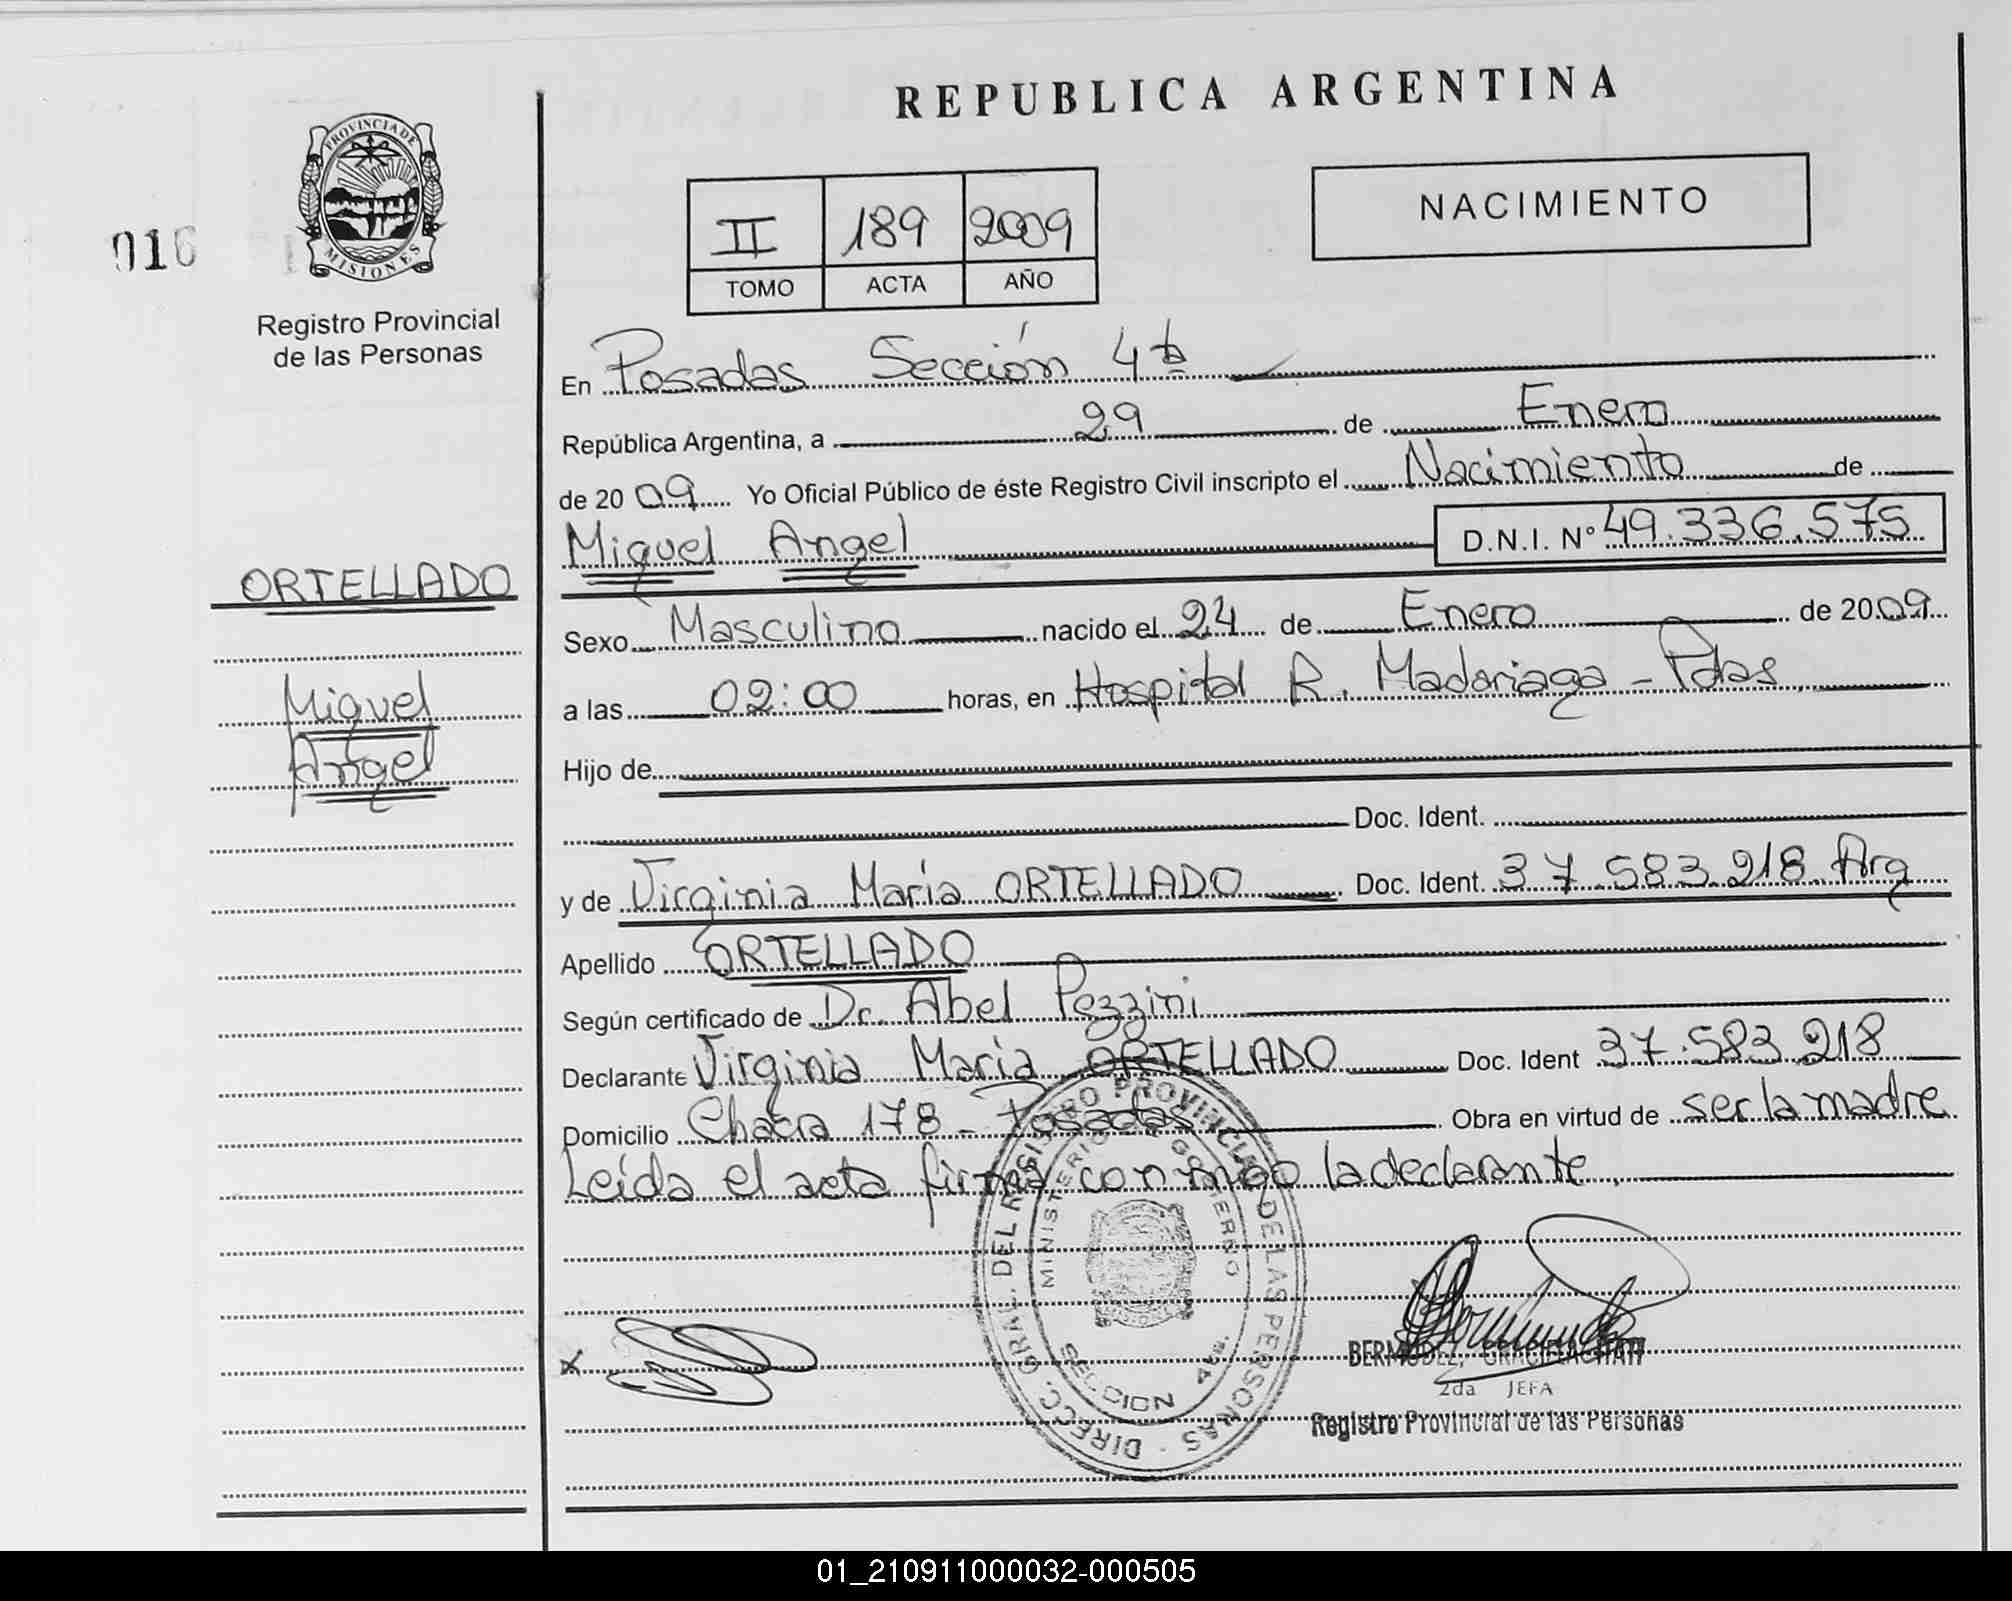 REPUBLICA ARGENTINA
PROVINCIA DE
MISIONES
016
II 189 2009
TOMO ACTA AÑO
NACIMIENTO
Registro Provincial
de las Personas
En Posadas Sección 4ta
República Argentina, a 29 de Enero
de 2009 Yo Oficial Público de éste Registro Civil inscripto el Nacimiento de
Miguel Angel D.N.I. Nº 49.336.575
ORTELLADO
Miguel
Angel
Sexo Masculino nacido el 24 de Enero de 2009
a las 02:00 horas, en Hospital R. Madariaga - Pdas
Hijo de
Doc. Ident.
y de Virginia María ORTELLADO Doc. Ident. 37.583.218 Arg
Apellido ORTELLADO
Según certificado de Dr. Abel Pezzini
Declarante Virginia María ORTELLADO Doc. Ident 37.583.218
Domicilio Chacra 178 - Posadas Obra en virtud de ser la madre
Leída el acta firma conmigo la declarante.
DIRECC. GRAL. DEL REGISTRO PROVINCIAL DE LAS PERSONAS
MINISTERIO DE GOBIERNO
SECCION 4ta.
X
BERMUDEZ,
2da JEFA
Registro Provincial de las Personas
01_210911000032-000505